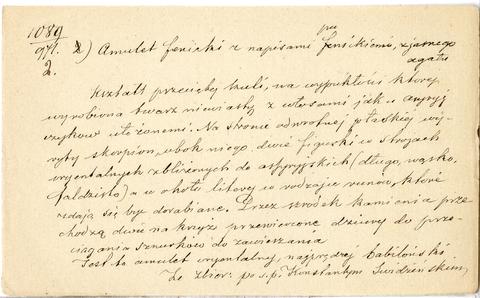 1089
941.
2. 2) Amulet fenicki z napisami fenickiemi, z jasnego
agatu
Kształt przeciętej kuli, na wypukłości której
wyrobiona twarz niewiasty z włosami jak u assyryj
czyków ułożonemi. Na stronie odwrotnej płaskiej wy-
ryty skorpion, obok niego dwie figurki w strojach
oryentalnych zbliżonych do assyryjskich (długo, wąsko,
fałdzisto) a w około litery w rodzaju runów, które
zdają się być dorabiane. Przez środek kamienia prze
chodzą dwie na krzyż przewiercone dziury do prze-
ciągania sznurków do zawieszania
Jest to amulet oryentalny, najprędzej babiloński
Ze zbior: po s.p. Konstantym Świdzińskim,